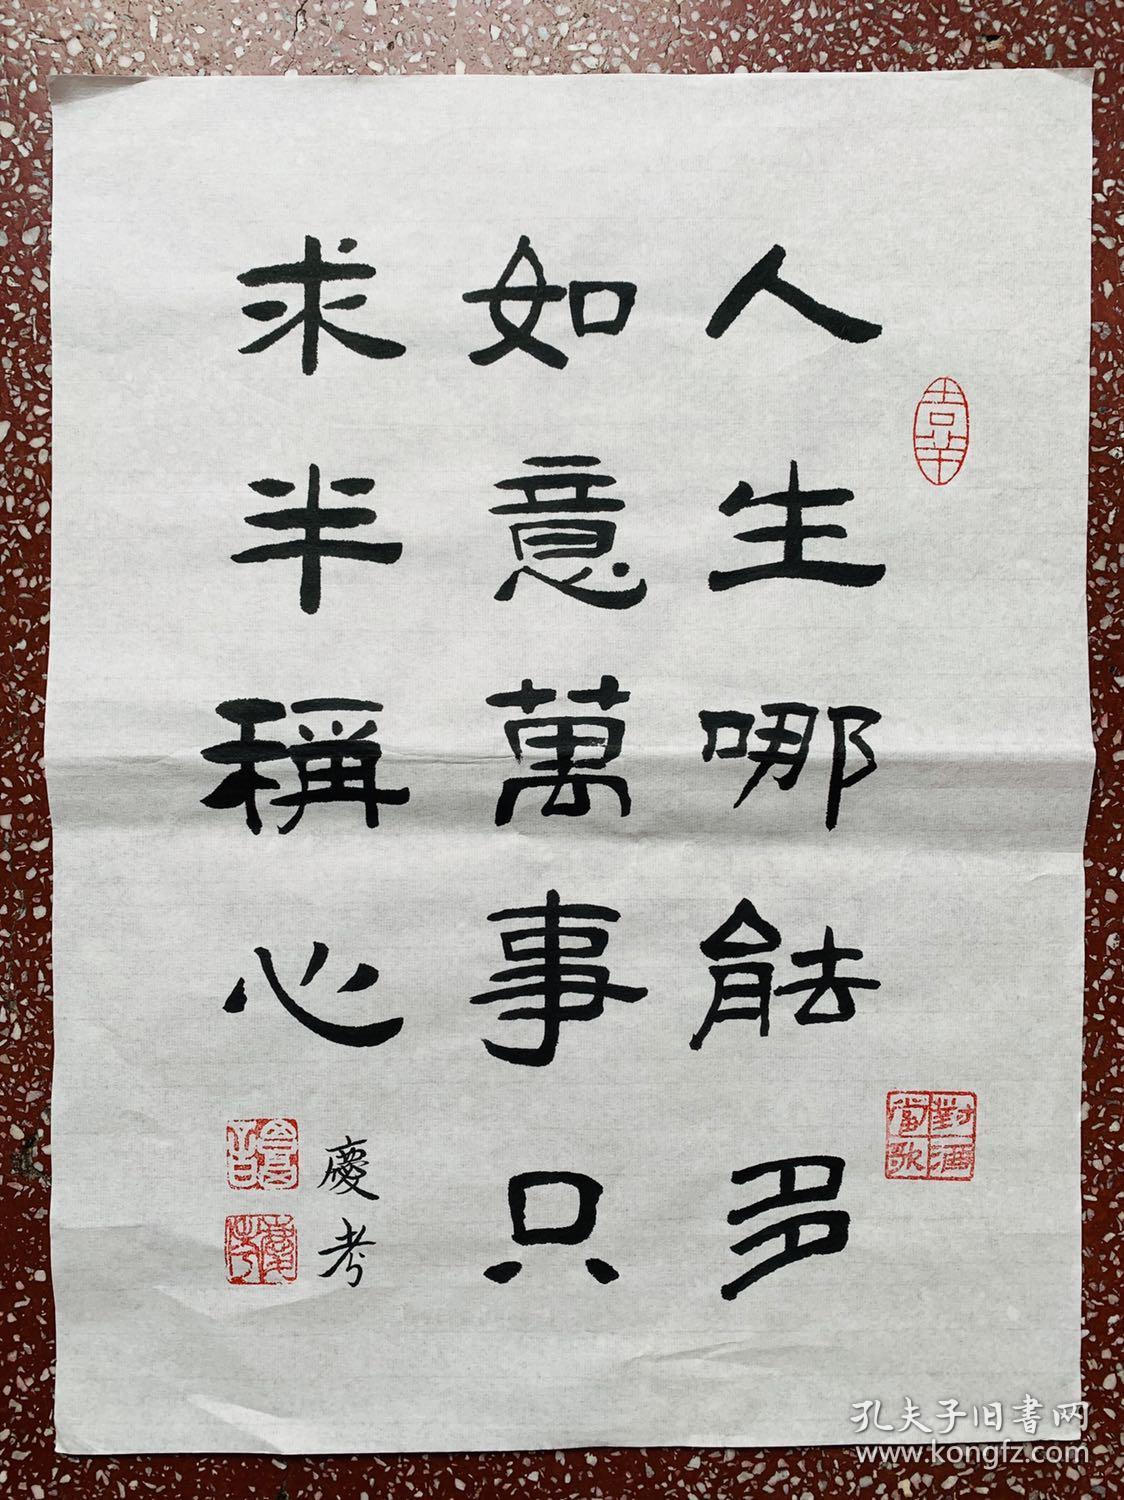 人生哪能多
如意萬事只
求半稱心
慶考
對酒當歌
慶考
孔夫子旧書网
www.kongfz.com